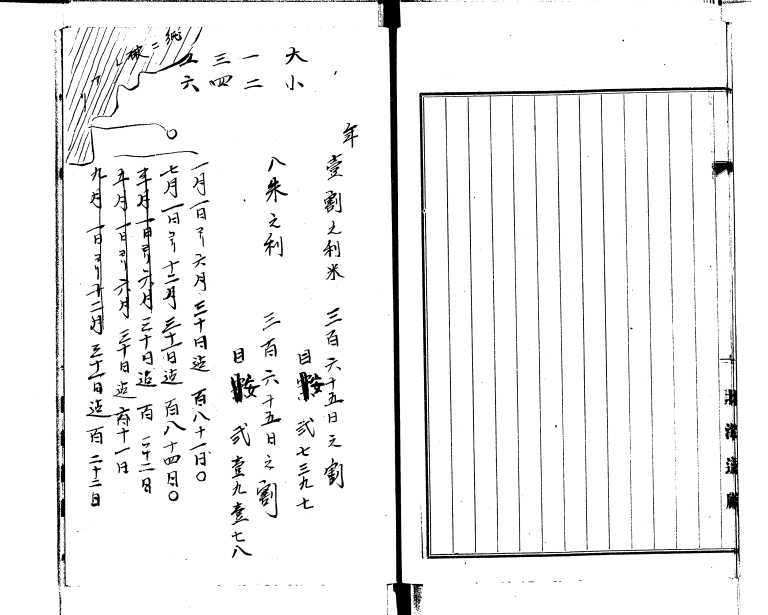 北海道廳
大小
一二
三四
五六
年壹割之利米　三百六十五日之割
目安　弐七三九七
八朱之利　三百六十五日之割
目安　弐壹九壹七八
一月一日ヨリ六月三十日迄　百八十一日〇
七月一日ヨリ十二月三十一日迄　百八十四日〇
三月一日ヨリ六月三十日迄　百二十二日
五月一日ヨリ六月三十日迄　六十一日
九月一日ヨリ十二月三十一日迄　百二十二日